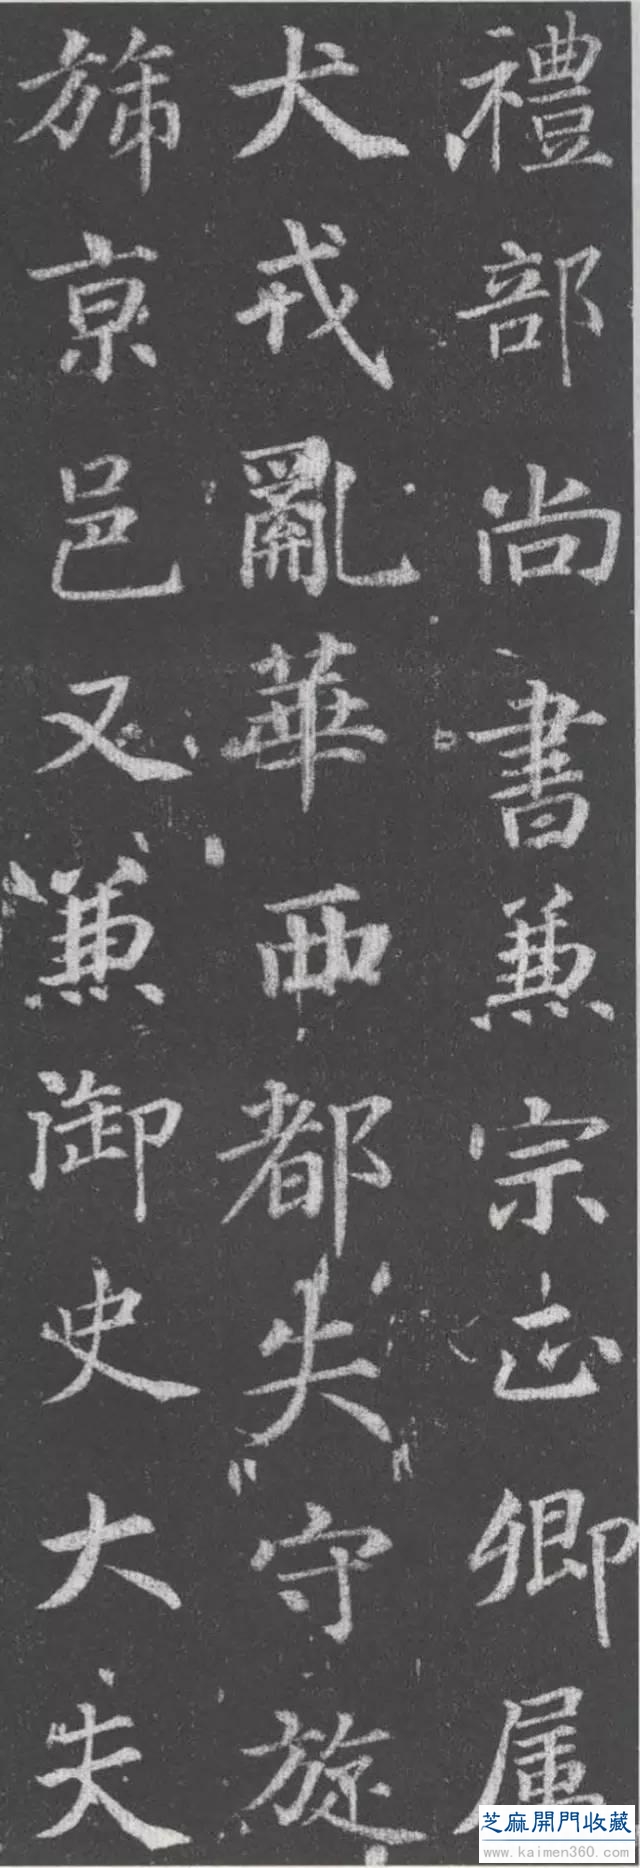 禮部尚書兼宗正卿属
犬戎亂華西都失守旋
旆京邑又兼御史大夫
芝麻開門收藏
www.kaimen360.com